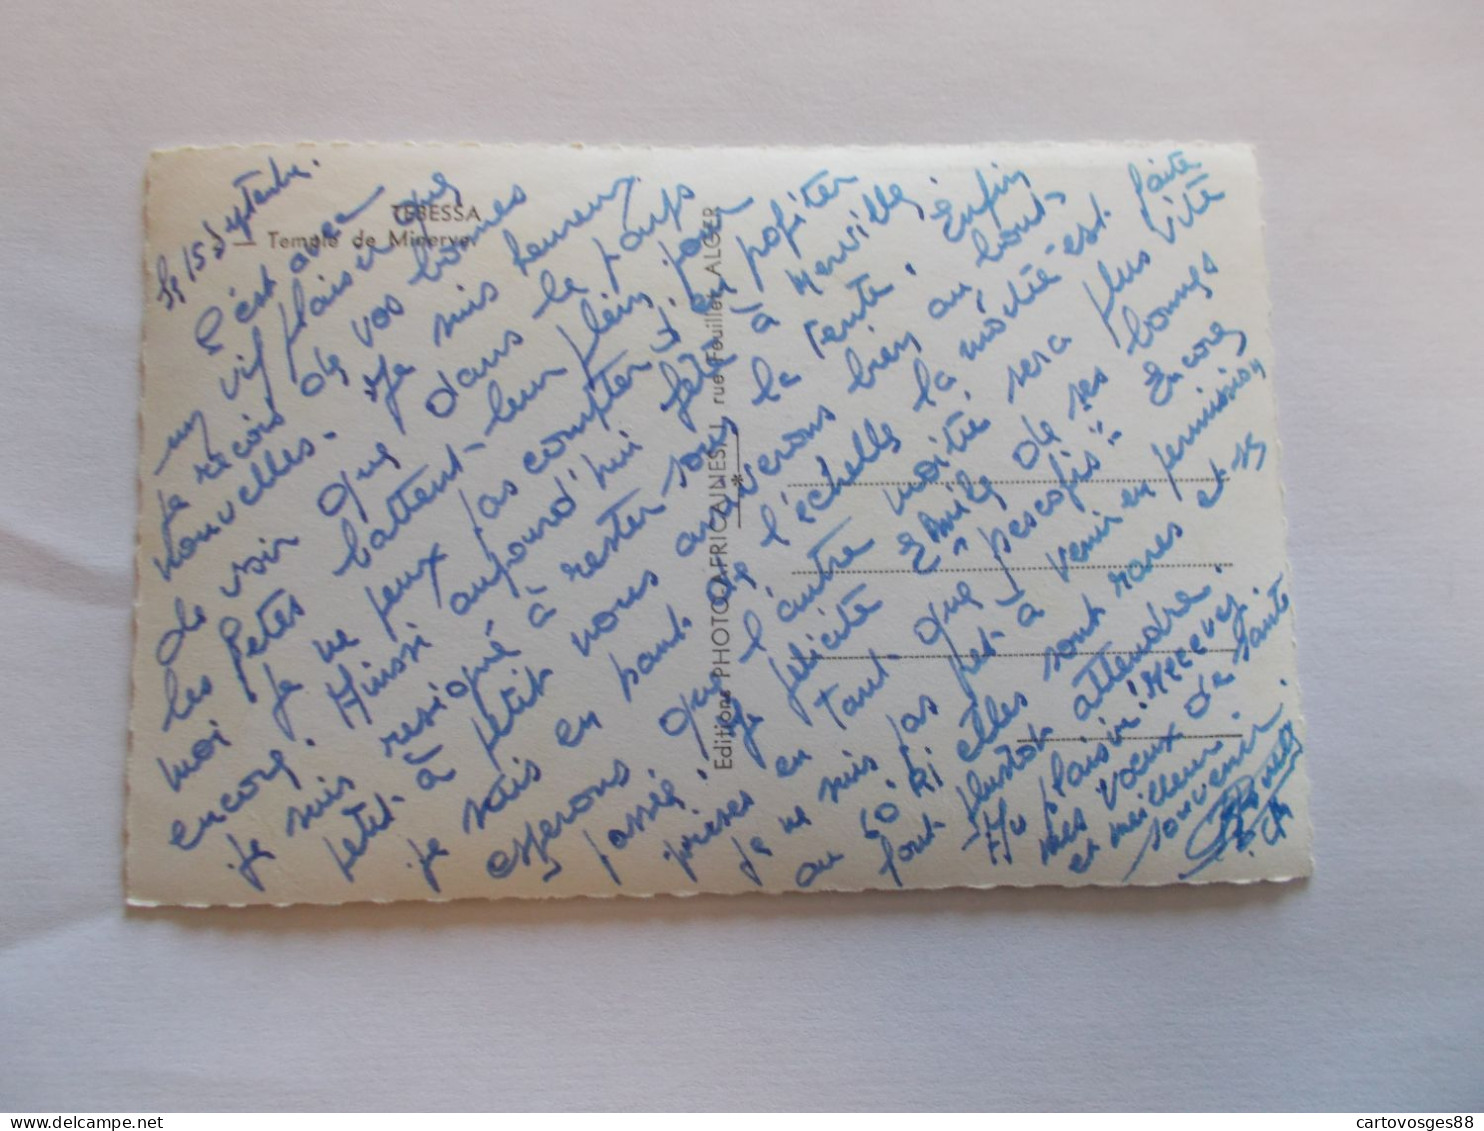 le 15 septembre.
TEBESSA
— Temple de Minerve.
C'est avec
un vif plaisir que
je reçois de vos bonnes
nouvelles. Je suis heureux
de voir que dans le pays
les fêtes battent leur plein, pour
moi je ne peux pas compter d'en profiter
encore. Aussi aujourd'hui fête à Merville.
je suis resigné à rester sous la tente. Enfin
petit à petit nous arriverons bien au bout
je suis en haut de l'échelle la moitié est faite
esperons que l'autre moitié sera plus vite
passée. Je félicite Emile de ses bonnes
prises en tant que "pescofis" Encore
je ne suis pas prêt à venir en permission
au 60 RI elles sont rares et il
faut plutôt attendre.
Au plaisir! Recevez
mes voeux de santé
et meilleur
souvenir.
Editions PHOTO-AFRICAINES, rue Feuillet, ALGER
cartovosges88